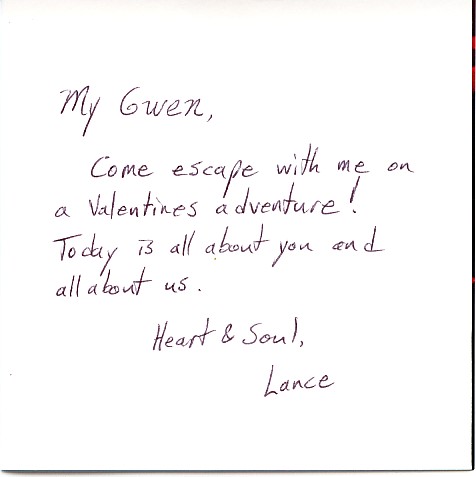 My Gwen,
Come escape with me on
a Valentines adventure!
Today is all about you and
all about us.
Heart & Soul,
Lance